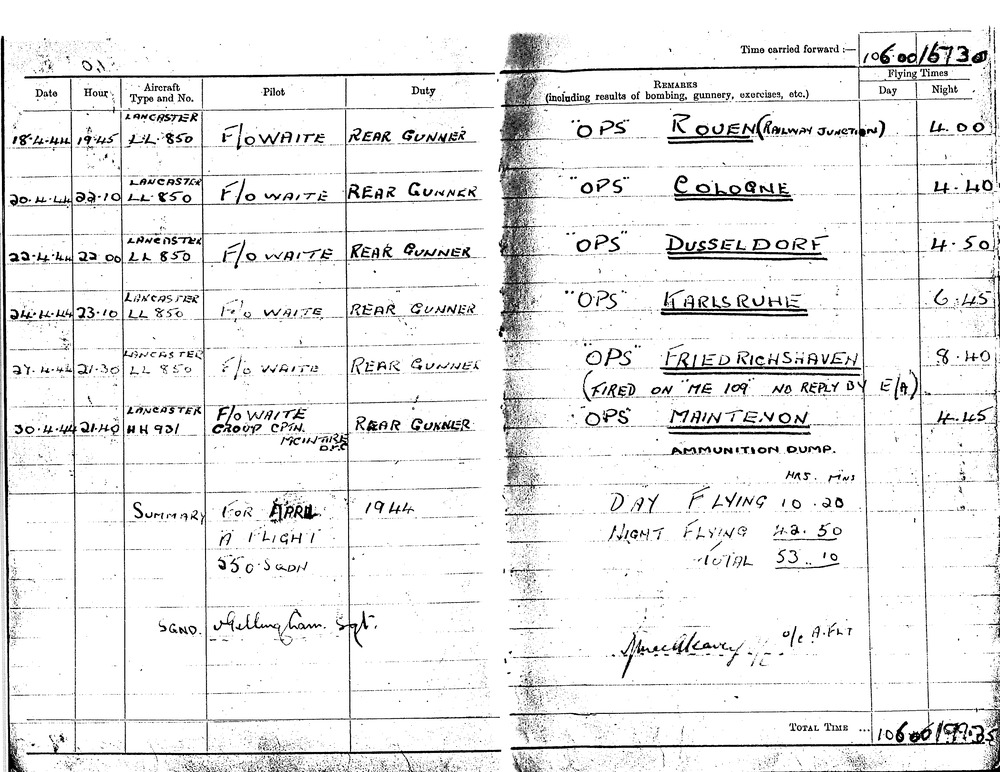 Time carried forward :—
106.00
Flying Times
Date Hour Aircraft Type and No. Pilot Duty
REMARKS (including results of bombing, gunnery, exercises, etc.) Day Night
18.4.44 19.45 LANCASTER LL 850 F/O WAITE REAR GUNNER "OPS" ROUEN (RAILWAY JUNCTION) 4.00
20.4.44 22.10 LANCASTER LL 850 F/O WAITE REAR GUNNER "OPS" COLOGNE 4.40
22.4.44 22.00 LANCASTER LL 850 F/O WAITE REAR GUNNER "OPS" DUSSELDORF 4.50
24.4.44 23.10 LANCASTER LL 850 F/O WAITE REAR GUNNER "OPS" KARLSRUHE 6.45
27.4.44 21.30 LANCASTER LL 850 F/O WAITE REAR GUNNER "OPS" FRIEDRICHSHAVEN 8.40
(FIRED ON "ME 109" NO REPLY BY E/A)
30.4.44 21.40 LANCASTER HH 931 F/O WAITE REAR GUNNER "OPS" MAINTENON 4.45
GROUP CPTN. MCINTIRE
AMMUNITION DUMP.
HRS. MNS
SUMMARY FOR APRIL 1944 DAY FLYING 10.20
A FLIGHT NIGHT FLYING 42.50
550 SQDN TOTAL 53.10
SGND. Sgt. O/C A. FLT
TOTAL TIME ...